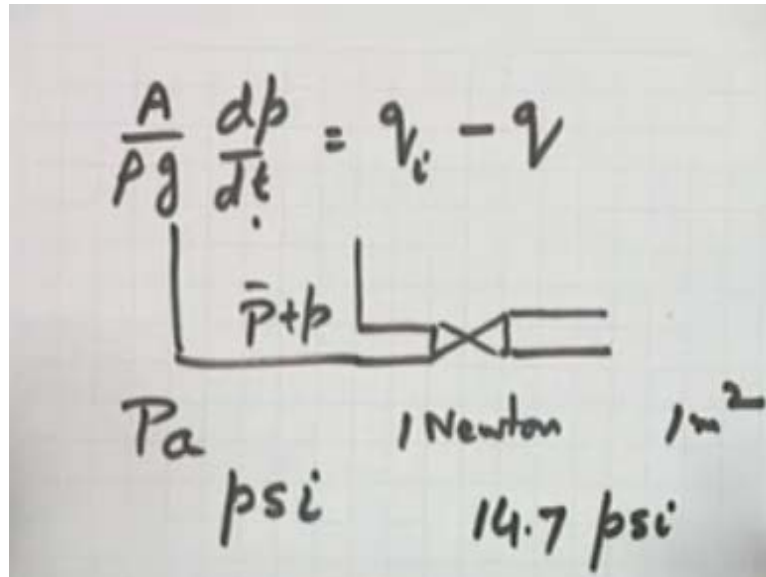 A/ρg dp/dt = qᵢ - q
P̄+p
Pa 1 Newton 1m²
psi 14.7 psi